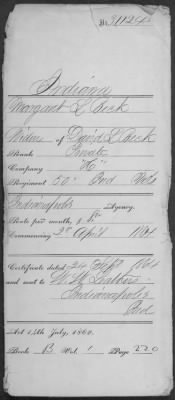 Indiana
Margaret L Beck
Widow of David L Beck
Rank Private
Company "H"
Regiment 50" Ind Vols
Indianapolis Agency.
Rate per month, $ 8
Commencing 2d April 1864
Certificate dated 24 Sept 1864
and sent to
Indianapolis
Ind
Act 14th July, 1862.
Book B Vol. 1 Page 220